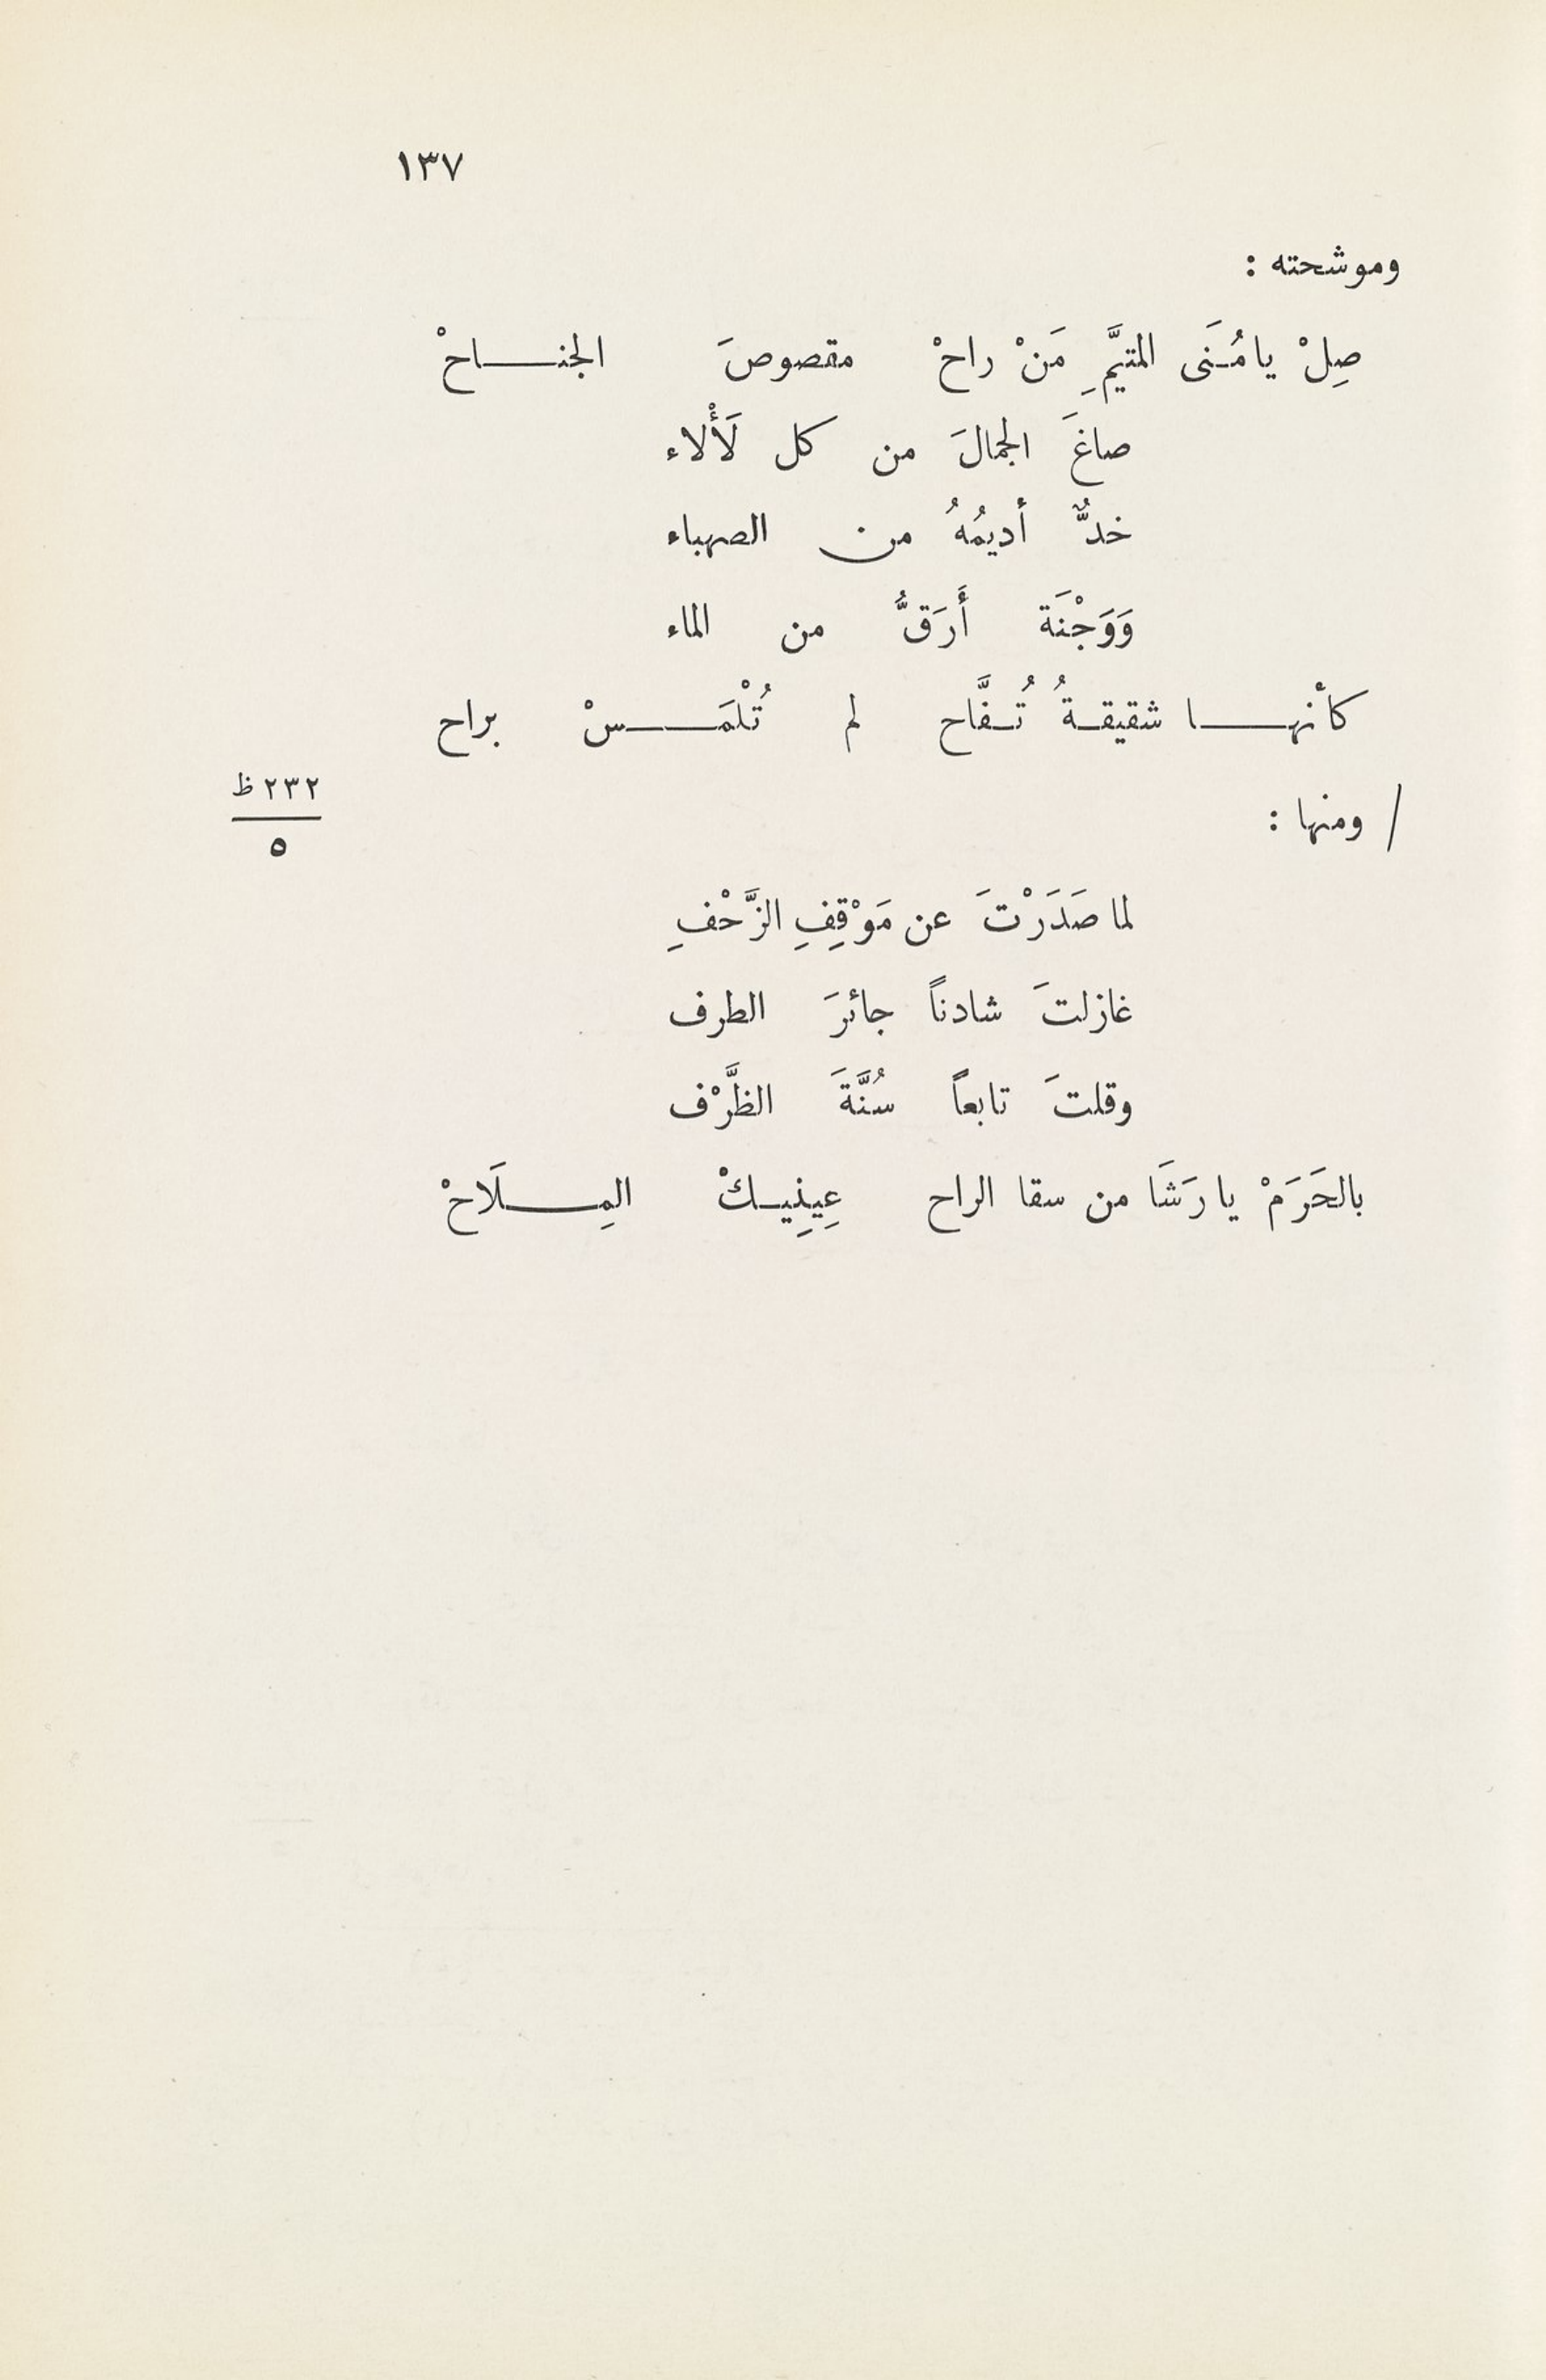 ١٣٧
وموشحته :
صِلْ يا مُنَى المتيَّمِ مَنْ راحْ مقصوصَ الجنـــاحْ
صاغَ الجمالَ من كل لَأْلاء
خدٌّ أديمُهُ من الصهباء
وَوَجْنَة أَرَقُّ من الماء
كأنهــا شقيقــةُ تُــفَّاح لم تُلْمَـــسْ براح
٢٣٢ ظ
/ ومنها :
٥
لما صَدَرْتَ عن مَوْقِفِ الزَّحْفِ
غازلتَ شادناً جائرَ الطرف
وقلتَ تابعاً سُنَّةَ الظَّرْف
بالحَرَمْ يا رَشَا من سقا الراح عِينِيــكْ المِـــلَاحْ